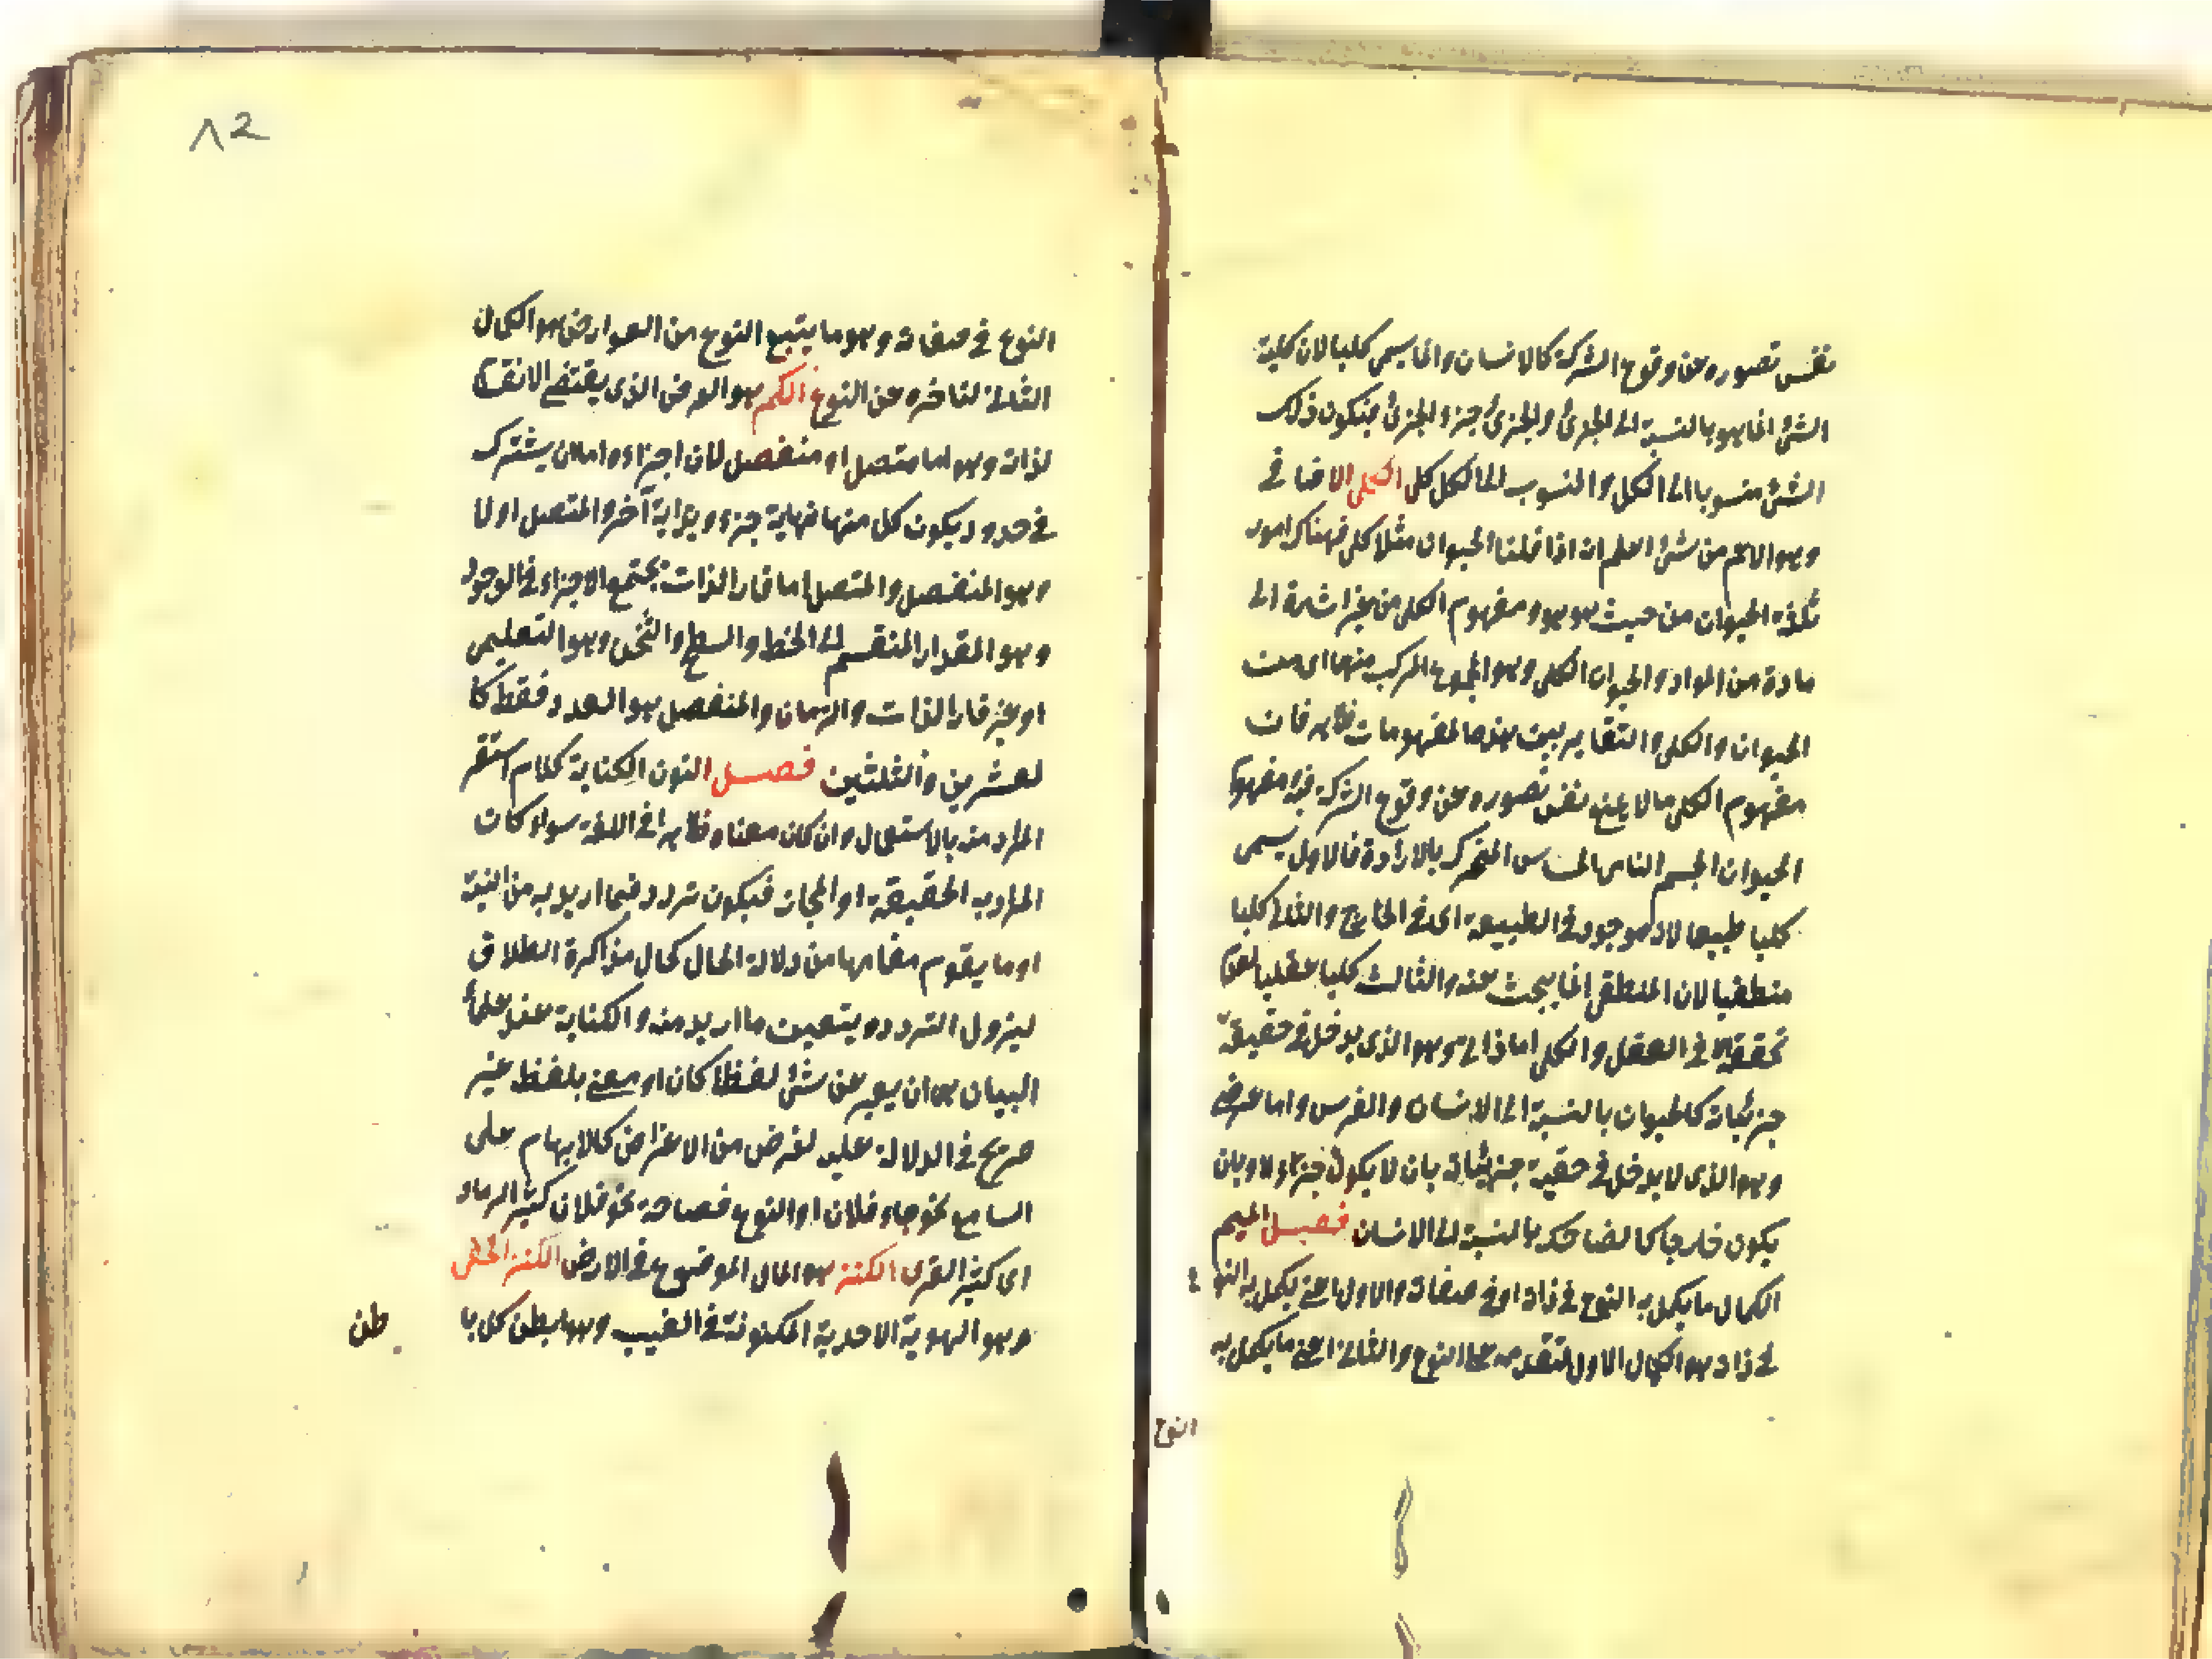 نفس تصوره عن وقوع الشركة كالانسان وانما يسمى كليا لان كلية
الشئ انما هو بالنسبة الى الجزئ والجزئ جزء الجزئ فيكون ذلك
الشئ منسوبا الى الكل والمنسوب الى الكل كلى الكلى الاضافى
وهو الاعم من شئ اعلم انه اذا قلنا الحيوان مثلا كلى فهناك امور
ثلثة الحيوان من حيث هو هو ومفهوم الكلى من غير اشارة الى
مادة من المواد والحيوان الكلى وهو المجموع المركب منهما اى من
الحيوان والكلى والتغاير بين هذه المفهومات ظاهر فان
مفهوم الكلى ما لا يمنع نفس تصوره عن وقوع الشركة فيه ومفهوم
الحيوان الجسم النامى الحساس المتحرك بالارادة فالاول يسمى
كليا طبيعيا لانه موجود فى الطبيعة اى فى الخارج والثانى كليا
منطقيا لان المنطقى انما يبحث عنه والثالث كليا عقليا لعدم
تحققه الا فى العقل والكلى اما ذاتى وهو الذى يدخل فى حقيقة
جزئياته كالحيوان بالنسبة الى الانسان والفرس واما عرضى
وهو الذى لا يدخل فى حقيقة جزئياته بان لا يكون جزء او بان
يكون خارجا كالضاحك بالنسبة الى الانسان فصل الميم
الكمال ما يكمل به النوع فى ذاته او فى صفاته والاول اعنى يكمل به النوع
فى ذاته هو الكمال الاول لتقدمه على النوع والثانى اعنى ما يكمل به
النوع
٨2
النوع فى صفاته وهو ما يتبع النوع من العوارض هو الكمال
الثانى لتاخره عن النوع الكم هو العرض الذى يقتضى الانقسام
لذاته وهو اما متصل او منفصل لان اجزاءه اما ان يشترك
فى حدود يكون كل منها نهاية جزء وبداية آخر والمتصل او لا
وهو المنفصل والمتصل اما قار الذات مجتمع الاجزاء فى الوجود
وهو المقدار المنقسم الى الخط والسطح والثخن وهو التعليمى
او غير قار الذات والزمان والمنفصل هو العدد فقط كا
لعشرين والثلثين فصل النون الكناية كلام استتر
المراد منه بالاستعمال وان كان معناه ظاهرا فى اللغة سواء كان
المراد به الحقيقة او المجاز فيكون تردد فيما اريد به من النية
او ما يقوم مقامها من دلالة الحال كحال مذاكرة الطلاق
ليزول التردد ويتعين ما اريد منه والكناية عند علماء
البيان هو ان يعبر عن شئ لفظا كان او معنى بلفظ غير
صريح فى الدلالة عليه لغرض من الاغراض كالابهام على
السامع نحو جاء فلان او النوع فصاحة نحو فلان كثير الرماد
اى كثير القرى الكنز هو المال الموضوع فى الارض الكنز المخفى
وهو الهوية الاحدية المكنونة فى الغيب وهو ابطن كل با
طن